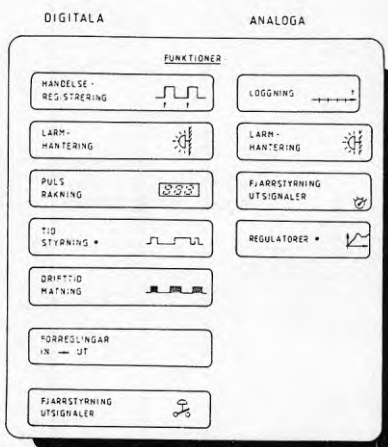 DIGITALA
ANALOGA
FUNKTIONER
HANDELSE-
REGISTRERING
LARM-
HANTERING
PULS
RAKNING
TID
STYRNING *
DRIFTTID
MATNING
FORREGLINGAR
IN → UT
FJARRSTYRNING
UTSIGNALER
LOGGNING
LARM-
HANTERING
FJARRSTYRNING
UTSIGNALER
REGULATORER *